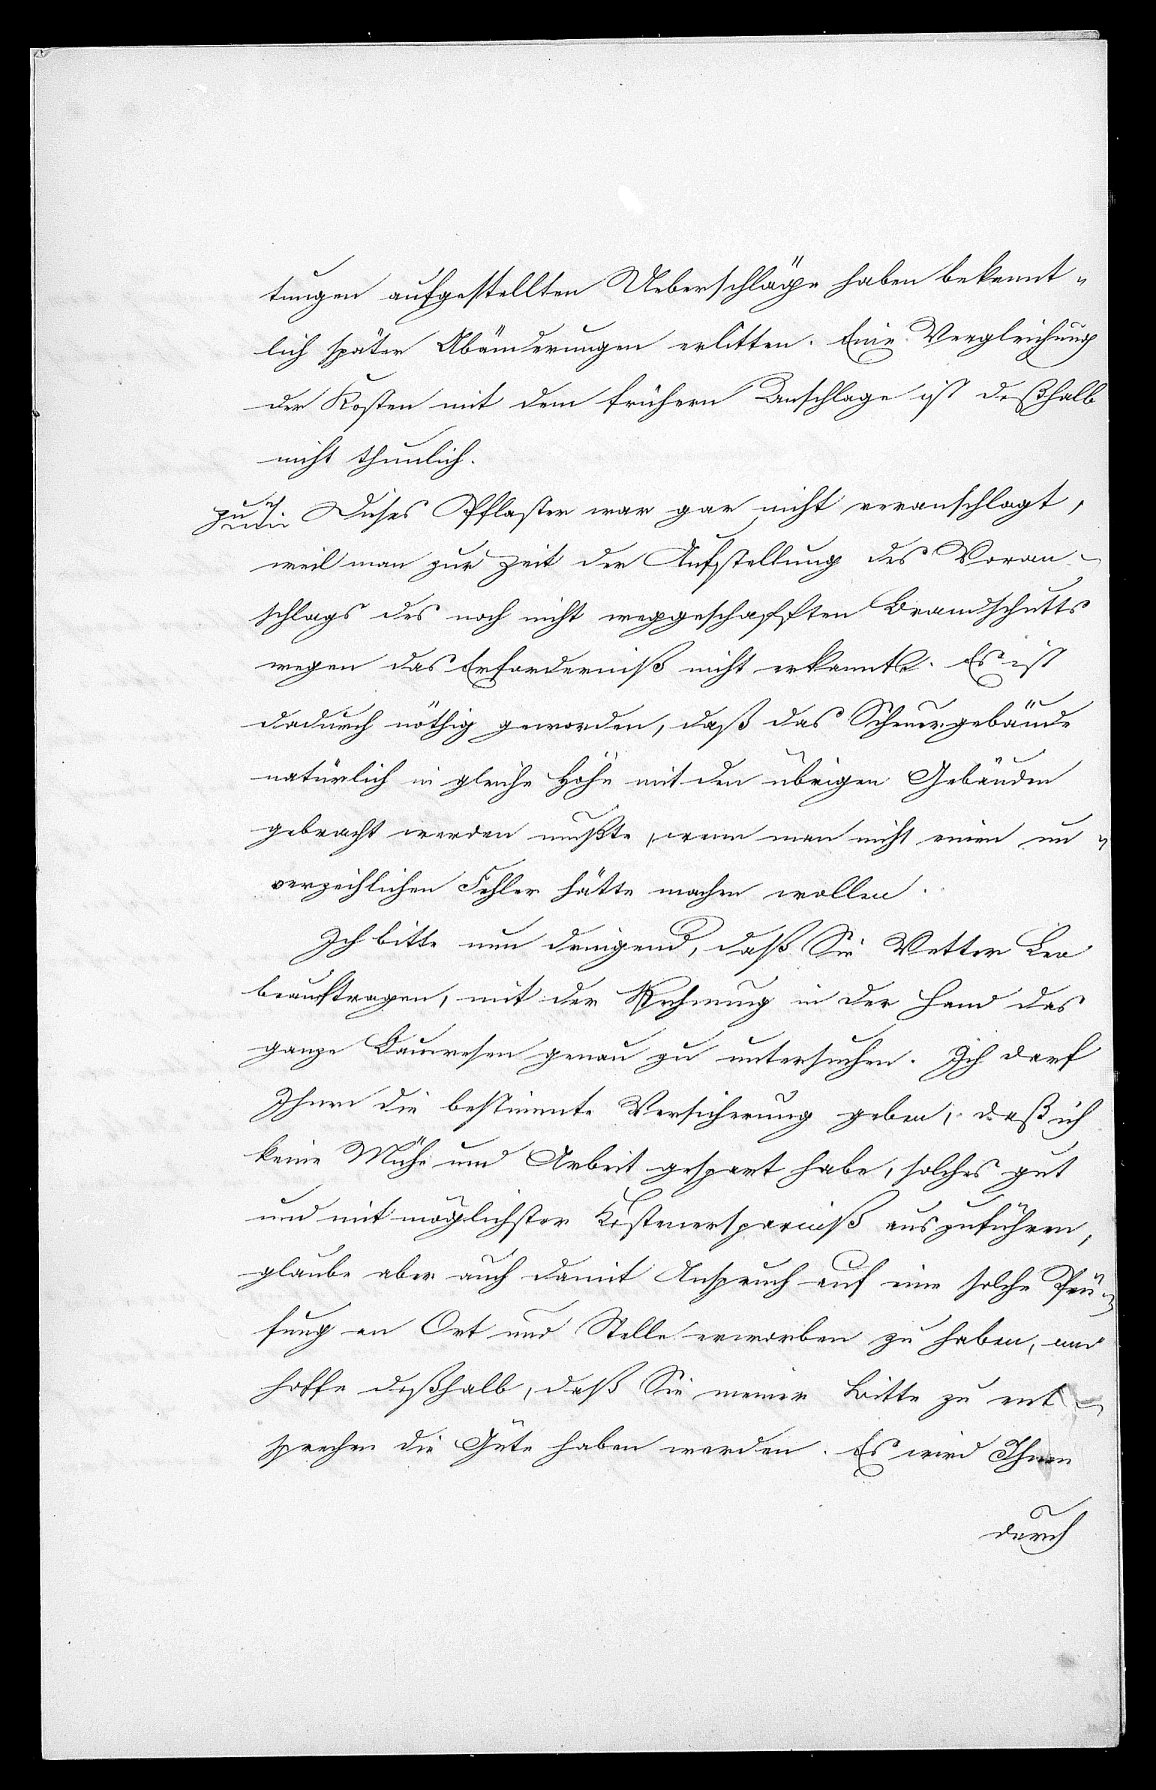 tungen aufgestellten Ueberschläge haben bekannt-
lich später Abänderungen erlitten. Eine Vergleichung
der Kosten mit dem frühern Anschlage ist deßhalb
nicht thunlich.
zu Dieses Pflaster war gar nicht veranschlagt,
weil man zur Zeit der Aufstellung des Voran-
schlags des noch nicht weggeschafften Brandschutts
wegen das Erforderniß nicht erkannte. Es ist
dadurch nöthig geworden, daß das Scheuergebäude
natürlich in gleiche Höhe mit den übrigen Gebäuden
gebracht werden mußte, wenn man nicht einen un-
verzeihlichen Fehler hätte machen wollen.
Ich bitte nun dringend, daß Sie Vetter Leo
beauftragen, mit der Rechnung in der Hand das
ganze Bauwesen genau zu untersuchen. Ich darf
Ihnen die bestimmte Versicherung geben, daß ich
keine Mühe und Arbeit gespart habe, solches gut
und mit möglichster Kostenersparniß auszuführen,
glaube aber auch damit Anspruch auf eine solche Prü-
fung an Ort und Stelle erworben zu haben, und
hoffe deßhalb, daß Sie meiner Bitte zu ent-
sprechen die Güte haben werden. Es wird Ihnen
durch